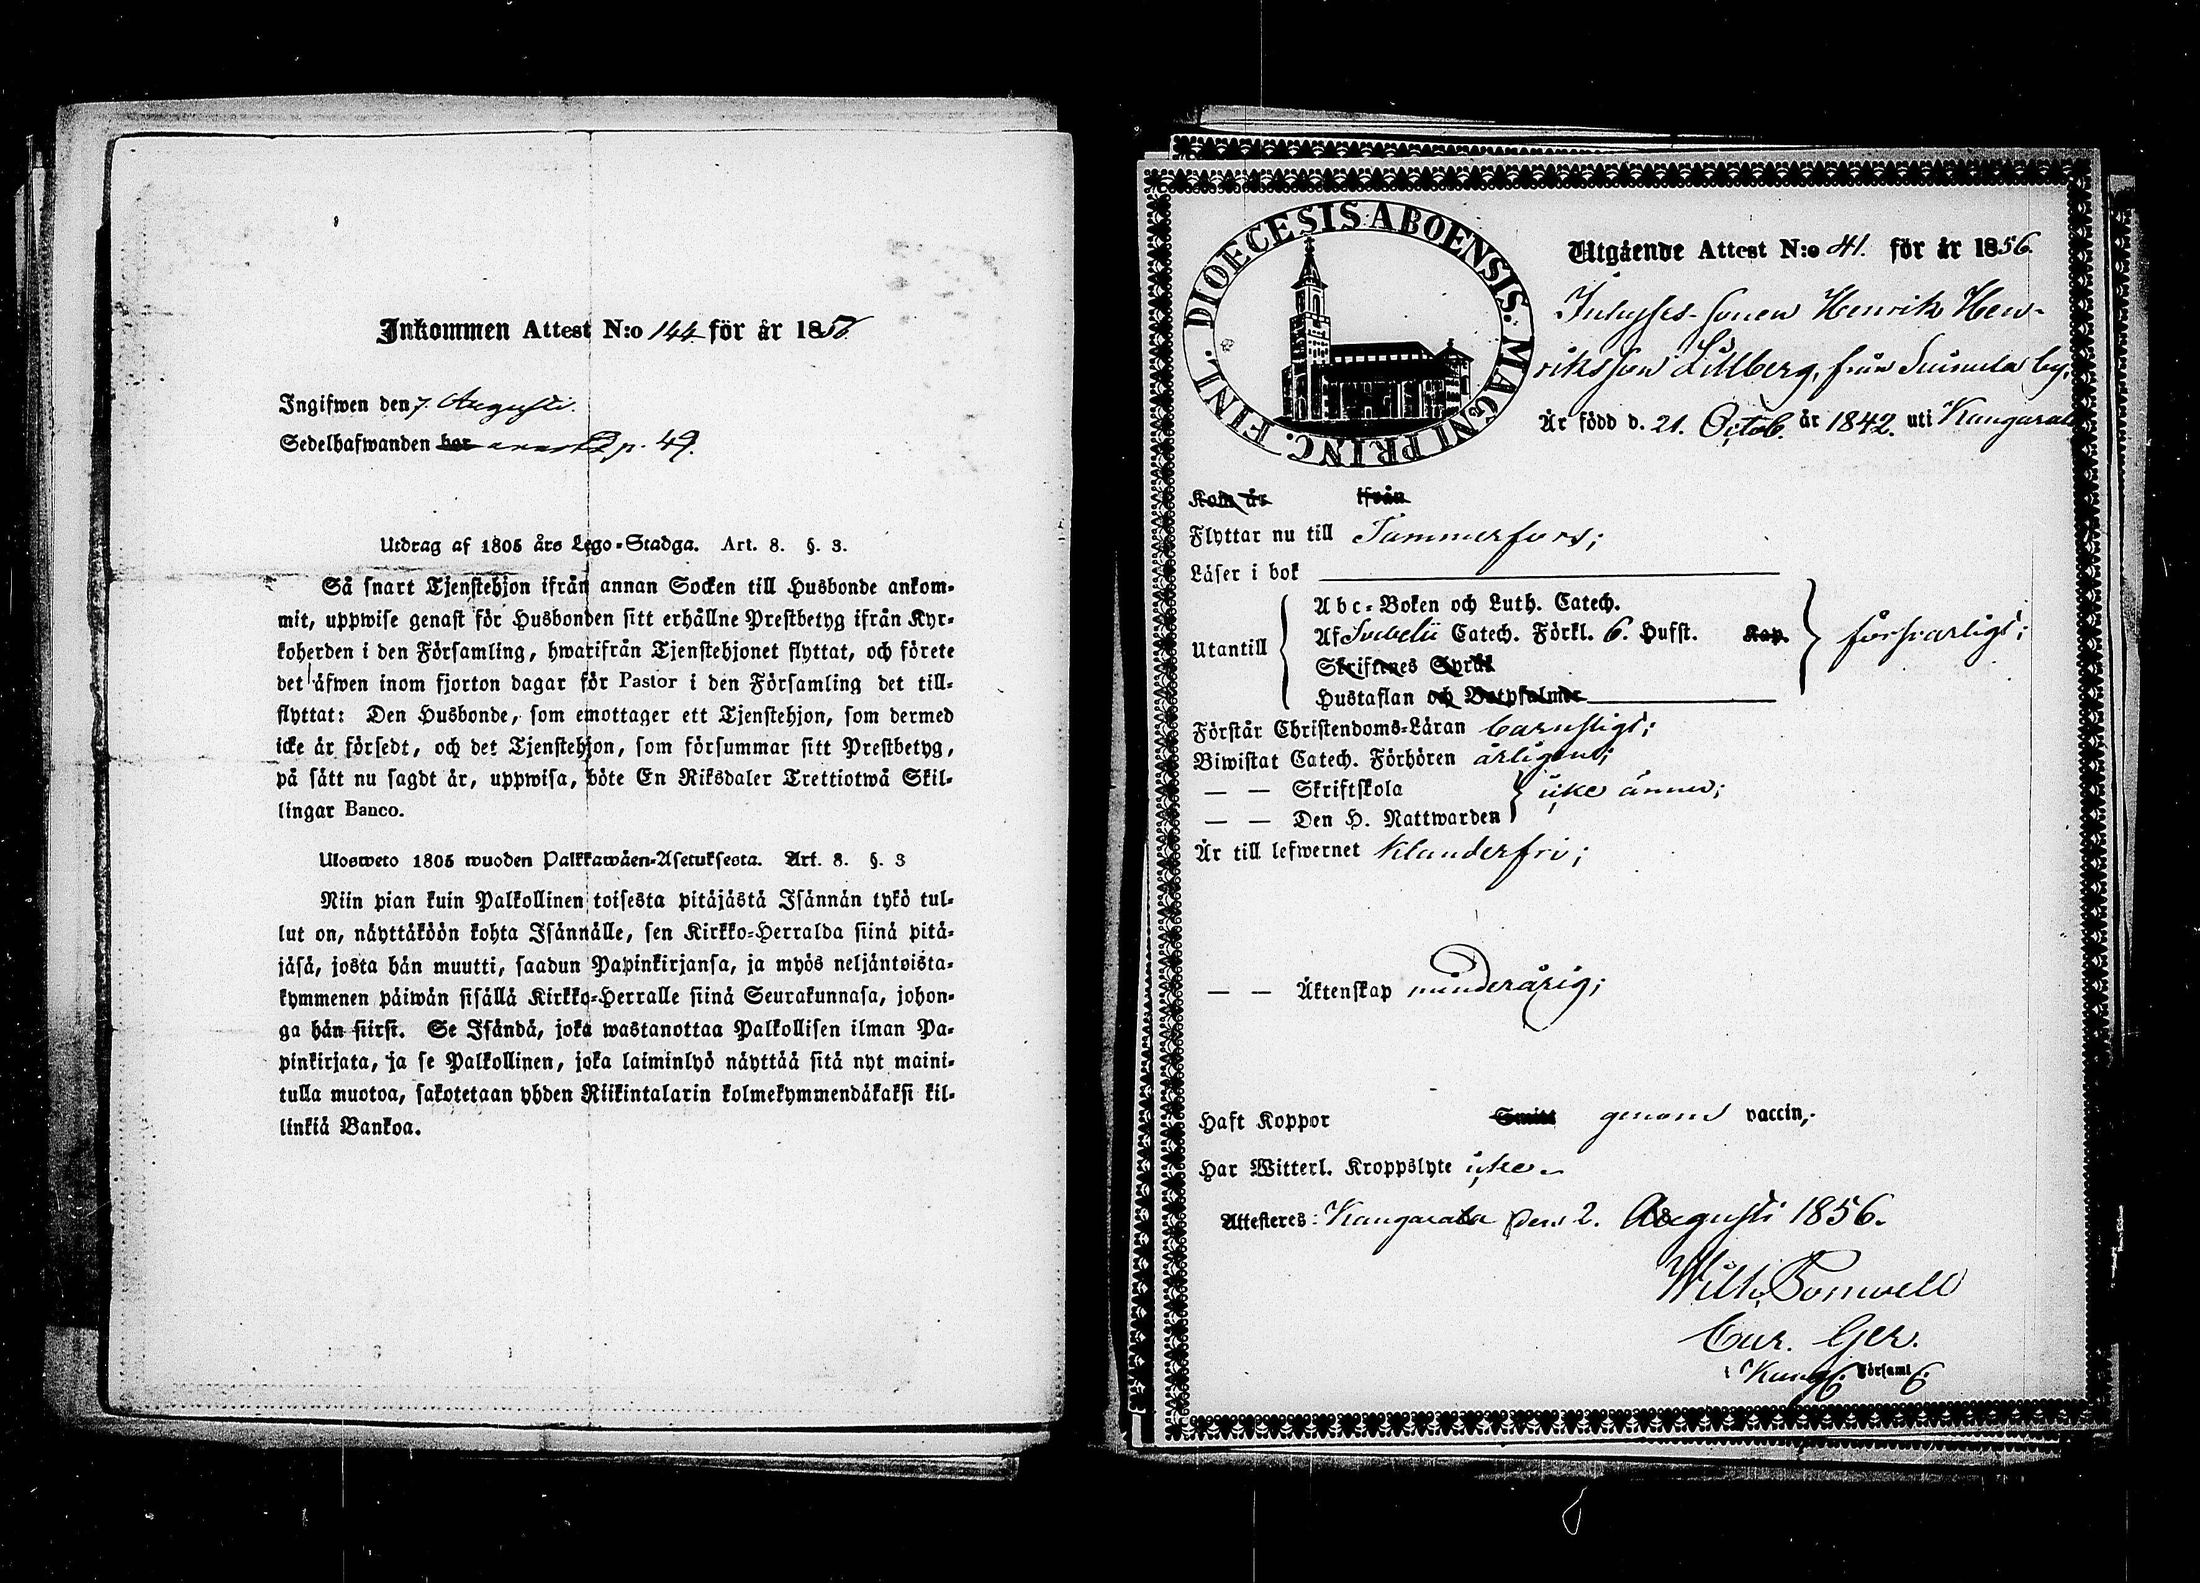 Inkommen Attest N:o 144 för år 1856.
Ingifwen den 7. Augusti.
Sedelhafwanden har p. 49.
Utdrag af 1805 års Lego-Stadga. Art. 8. §. 3.
Så snart Tjenstehjon ifrån annan Socken till Husbonde ankom-
mit, uppwise genast för Husbonden sitt erhållne Prestbetyg ifrån Kyr-
koherden i den Församling, hwarifrån Tjenstehjonet flyttat, och förete
det äfwen inom fjorton dagar för Pastor i den Församling det till-
flyttat: Den Husbonde, som emottager ett Tjenstehjon, som dermed
icke är försedt, och det Tjenstehjon, som försummar sitt Prestbetyg,
på sätt nu sagdt är, uppwisa, böte En Riksdaler Trettiotwå Skil-
lingar Banco.
Ulosweto 1805 wuoden Palkkawäen-Asetuksesta. Art. 8. §. 3
Niin pian kuin Palkollinen toisesta pitäjästä Isännän tykö tul-
lut on, näyttäköön kohta Isännälle, sen Kirkko-Herralda siinä pitä-
jäsä, josta hän muutti, saadun Papinkirjansa, ja myös neljäntoista-
kymmenen päiwän sisällä Kirkko-Herralle siinä Seurakunnasa, johon-
ga hän siirsi. Se Isändä, joka wastanottaa Palkollisen ilman Pa-
pinkirjata, ja se Palkollinen, joka laiminlyö näyttää sitä nyt maini-
tulla muotoa, sakotetaan yhden Riikintalarin kolmekymmendäkaksi kil-
linkiä Bankoa.
DIOECESIS ABOENSIS. MAGNI PRINC. FINL.
Utgående Attest N:o 41. för år 1856.
Inhyses-sonen Henrik Hen-
riksson Lillberg, från Suinula by,
Är född d. 21. Octob. år 1842. uti Kangasala
Kom år ifrån
Flyttar nu till Tammerfors;
Läser i bok
Utantill
Abc-Boken och Luth. Catech.
Af Svebelii Catech. Förkl. 6. Hufst. Kap.
Skriftenes Språk
Hustaflan och Botpsalmer
försvarligt;
Förstår Christendoms-Läran barnsligt;
Biwistat Catech. Förhören årligen;
— — Skriftskola
— — Den H. Nattwarden
icke ännu;
Är till lefwernet klanderfri;
— — Äktenskap minderårig;
Haft Koppor Smitt genom vaccin;
Har Witterl. Kroppslyte icke.
Attesteres: Kangasala den 2. Augusti 1856.
Wilh. Bomwell
Cur. Ger.
i Kang. Församl.